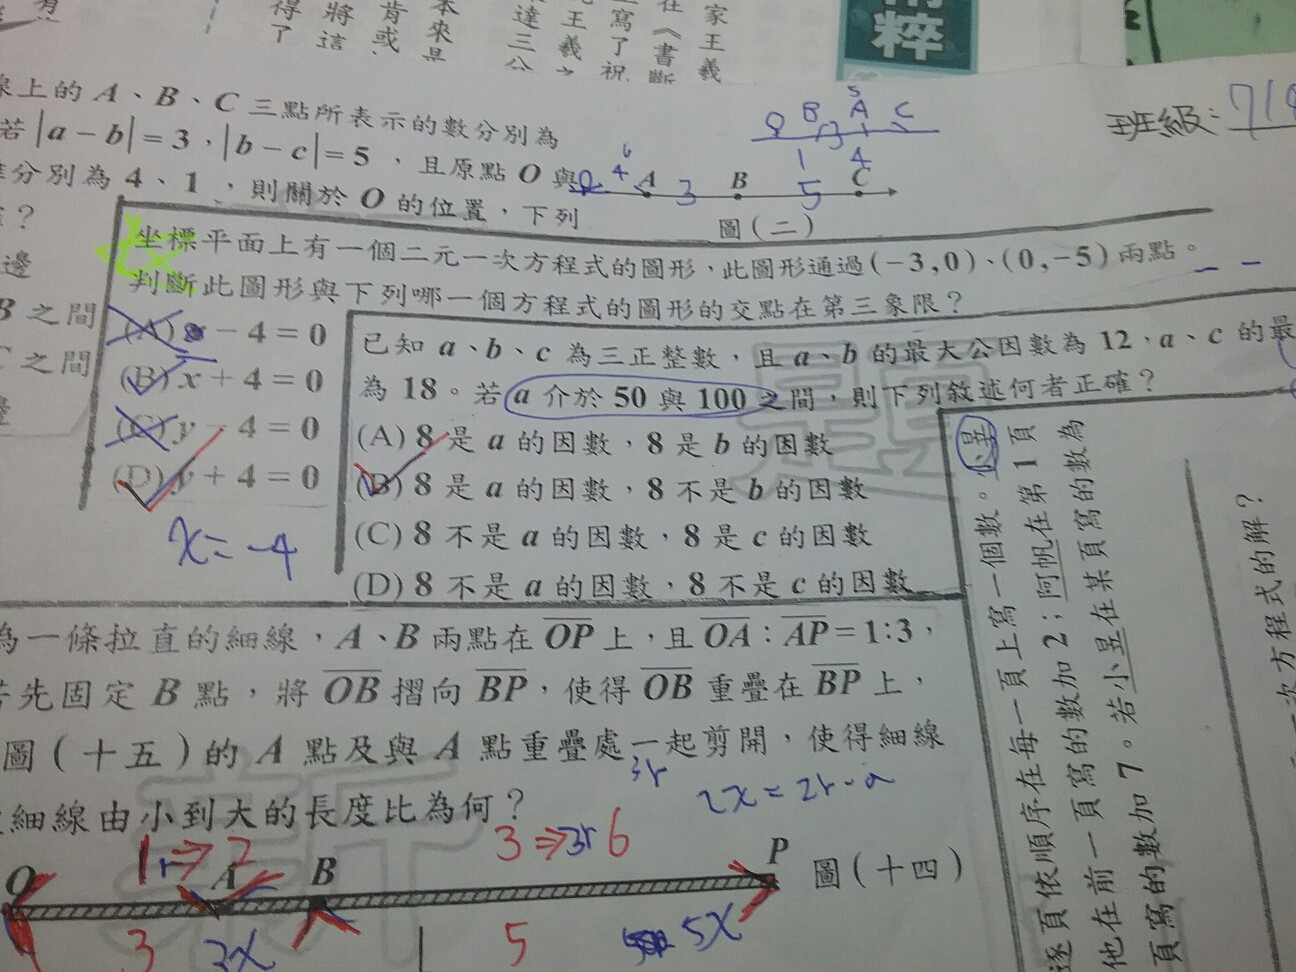 家王義
在《書斷
寫了祝
王義之
達三公
本來是
肯或
將這
得了
精粹
班級：
線上的 A、B、C 三點所表示的數分別為
若 |a－b|＝3，|b－c|＝5，且原點 O 與
分別為 4、1，則關於 O 的位置，下列
？
邊
B 之間
C 之間
O B A C
5
3
1 4
6
4 A 3 B 5 C
圖(二)
坐標平面上有一個二元一次方程式的圖形，此圖形通過(－3,0)、(0,－5)兩點。
判斷此圖形與下列哪一個方程式的圖形的交點在第三象限？
(A) x－4＝0
(B) x＋4＝0
(C) y－4＝0
(D) y＋4＝0
x=-4
已知 a、b、c 為三正整數，且 a、b 的最大公因數為 12，a、c 的最
為 18。若 a 介於 50 與 100 之間，則下列敘述何者正確？
(A) 8 是 a 的因數，8 是 b 的因數
(B) 8 是 a 的因數，8 不是 b 的因數
(C) 8 不是 a 的因數，8 是 c 的因數
(D) 8 不是 a 的因數，8 不是 c 的因數
為一條拉直的細線，A、B 兩點在 OP 上，且 OA：AP＝1:3，
若先固定 B 點，將 OB 摺向 BP，使得 OB 重疊在 BP 上，
圖(十五)的 A 點及與 A 點重疊處一起剪開，使得細線
細線由小到大的長度比為何？
3r
2x=2r-a
1r⇒2
3⇒3r 6
O A B P
圖(十四)
3 3x 5 5x
一個數。小昱
逐頁依順序在每一頁上寫
他在前一頁寫的數加 2；阿帆在第 1 頁
頁寫的數加 7。若小昱在某頁寫的數為
次方程式的解？